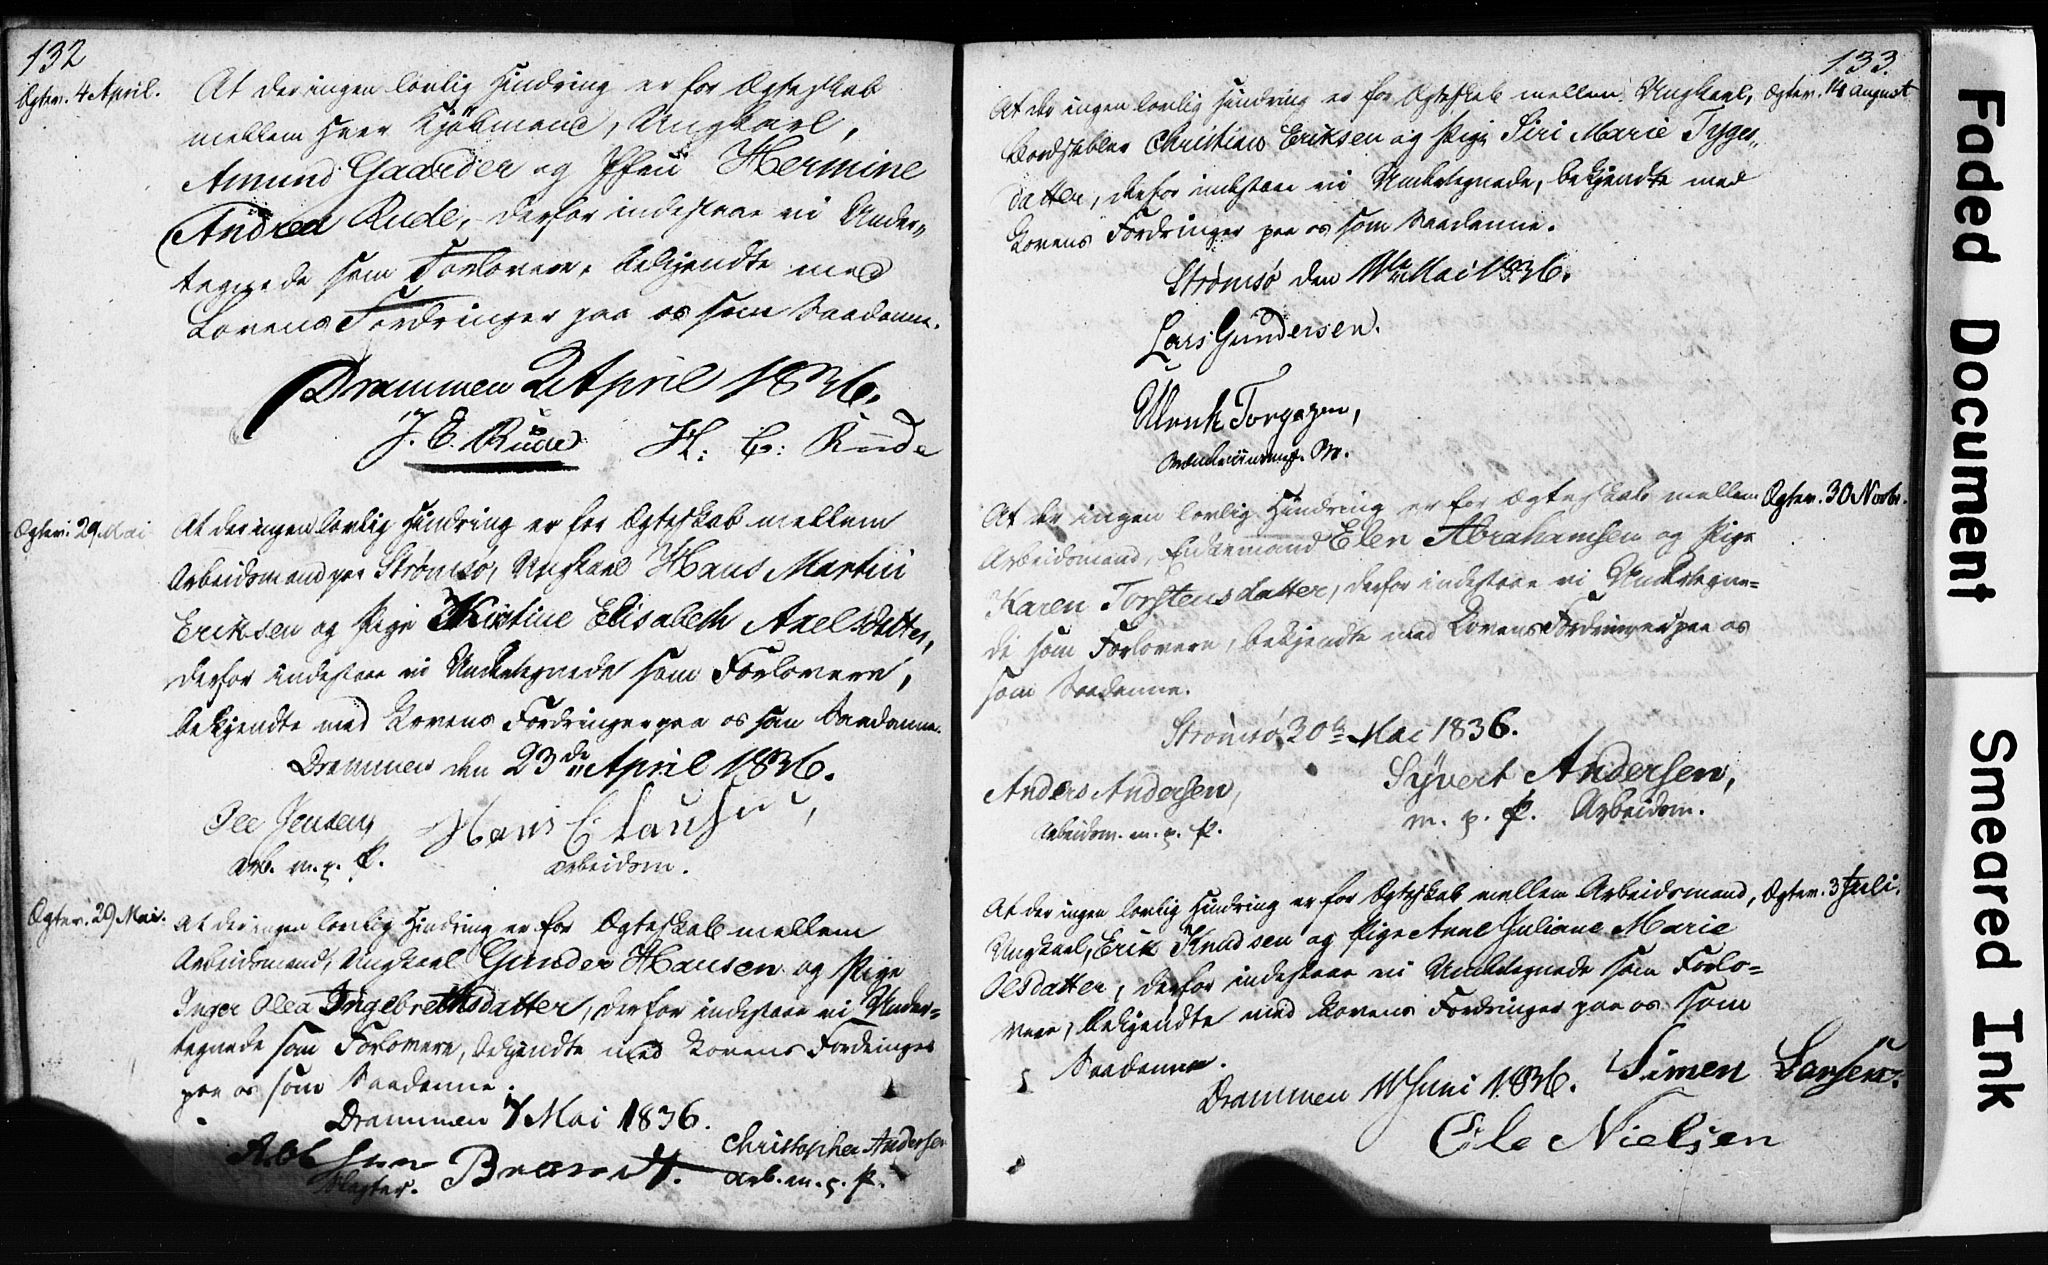 132
Ægtev. 4 April.
At der ingen lovlig Hindring er for Ægteskab
mellem Herr Kjöbmand, Ungkarl,
Amund Gaarder og Jfru Hermine
Andrea Rude, derfor indestaae vi Under-
tegnede som Forlovere, bekjendte med
Lovens Fordringer paa os som Saadanne.
Drammen 2 April 1836.
J. E. Rude H. C: Rude
Ægtev. 29 Mai
At der ingen lovlig Hindring er for Ægteskab mellem
Arbeidsmand paa Strømsø, Ungkarl Hans Martin
Eriksen og Pige Kirstine Elisabeth Axelsdatter,
derfor indestaae vi Undertegnede som Forlovere,
bekjendte med Lovens Fordringer paa os som Saadanne.
Drammen den 23de April 1836.
Ole Jensen, Hans Clausen,
arb. m. p. P. arbeidsm.
Ægtev. 29 Mai.
At der ingen lovlig Hindring er for Ægteskab mellem
Arbeidsmand, Ungkarl Gunder Hansen og Pige
Inger Olea Ingebrethsdatter, derfor indestaae vi Under-
tegnede som Forlovere, bekjendte med Lovens Fordringer
paa os som Saadanne.
Drammen 7 Mai 1836.
Brandt. Christopher Andersen
arb. m. p. P.
133.
At der ingen lovlig Hindring er for Ægteskab mellem Ungkarl, Ægtev. 14 august
Bordstabler Christian Eriksen og Pige Siri Marie Tyges-
datter, derfor indestaae vi Undertegnede, bekjendte med
Lovens Fordringer paa os som Saadanne.
Strømsø den 11te Mai 1836.
Lars Gundersen.
Ulrik Torgesen,
At der ingen lovlig Hindring er for Ægteskab mellem Ægtev. 30 Novbr.
Arbeidsmand, Enkemand Elen Abrahamsen og Pige
Karen Torstensdatter, derfor indestaae vi Undertegne-
de som Forlovere, bekjendte med Lovens Fordringer paa os
som Saadanne.
Strømsø, 30te Mai 1836.
Anders Andersen, Syvert Andersen,
Arbeidsm. m. p. P. m. p. P. Arbeidsm.
At der ingen lovlig Hindring er for Ægteskab mellem Arbeidsmand, Ægtev. 3 Juli.
Ungkarl, Erik Knudsen og Pige Anne Juliane Marie
Olsdatter, derfor indestaae vi Undertegnede som Forlo-
vere, bekjendte med Lovens Fordringer paa os som
Saadanne.
Drammen 11 Juni 1836. Simen Hansen.
Ole Nielsen
Faded Document
Smeared Ink